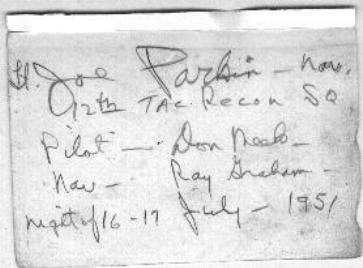 Lt. Joe Parkin - Nav.
12th TAC. Recon SQ
Pilot - Don
Nav - Ray Graham -
night of 16-17 July - 1951